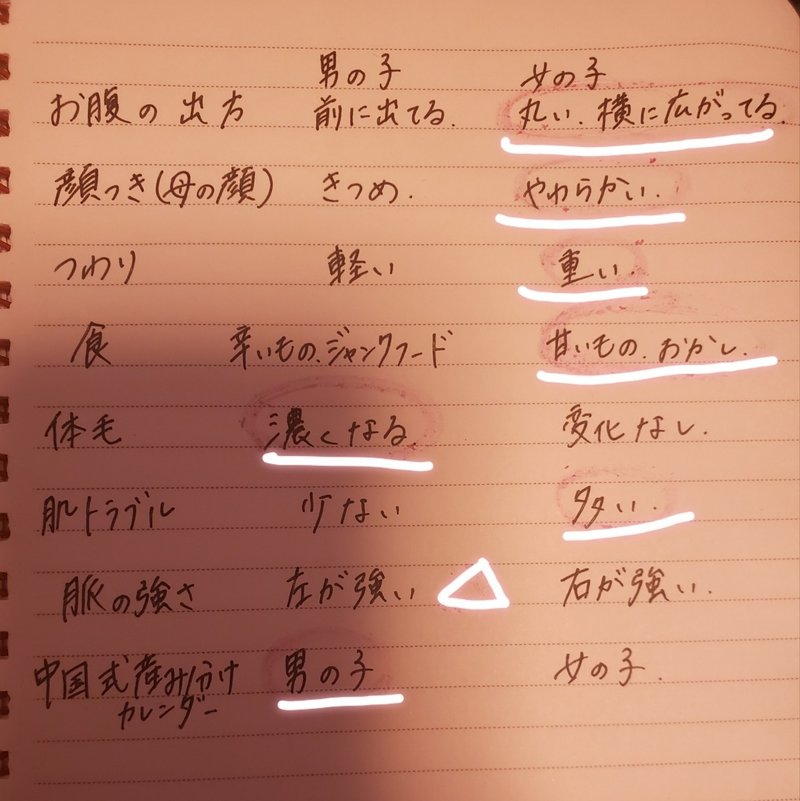 男の子 女の子
お腹の出方 前に出てる. 丸い. 横に広がってる.
顔つき(母の顔) きつめ. やわらかい.
つわり 軽い 重い.
食 辛いもの.ジャンクフード 甘いもの. おかし.
体毛 濃くなる. 変化なし.
肌トラブル 少ない 多い.
脈の強さ 左が強い 右が強い.
中国式産み分け 男の子 女の子.
カレンダー